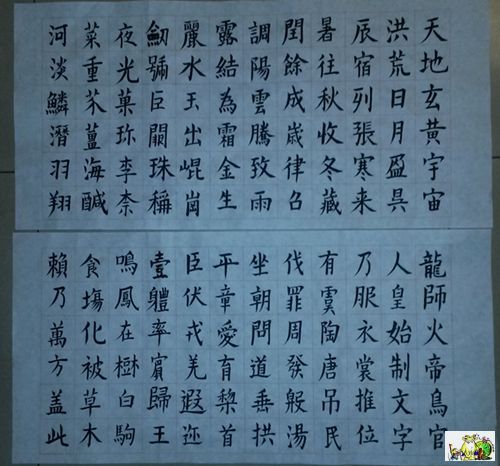 天地玄黃宇宙
洪荒日月盈昃
辰宿列張寒来
暑往秋收冬藏
閏餘成歲律召
調陽雲騰致雨
露結為霜金生
麗水玉出崐崗
劒號巨闕珠稱
夜光菓珎李柰
菜重芥薑海醎
河淡鱗潛羽翔
龍師火帝鳥官
人皇始制文字
乃服衣裳推位
有虞陶唐吊民
伐罪周發殷湯
坐朝問道垂拱
平章愛育黎首
臣伏戎羌遐迩
壹軆率賓歸王
鳴鳳在樹白駒
食塲化被草木
賴乃萬方盖此